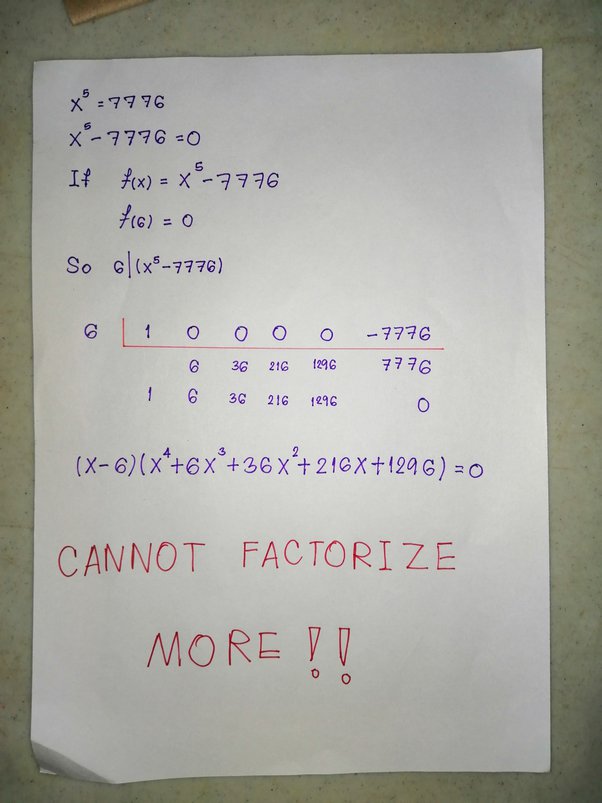 x⁵ = 7776
x⁵ - 7776 = 0
If f(x) = x⁵ - 7776
f(6) = 0
So 6|(x⁵-7776)
6 1 0 0 0 0 -7776
6 36 216 1296 7776
1 6 36 216 1296 0
(x-6)(x⁴+6x³+36x²+216x+1296) = 0
CANNOT FACTORIZE
MORE !!